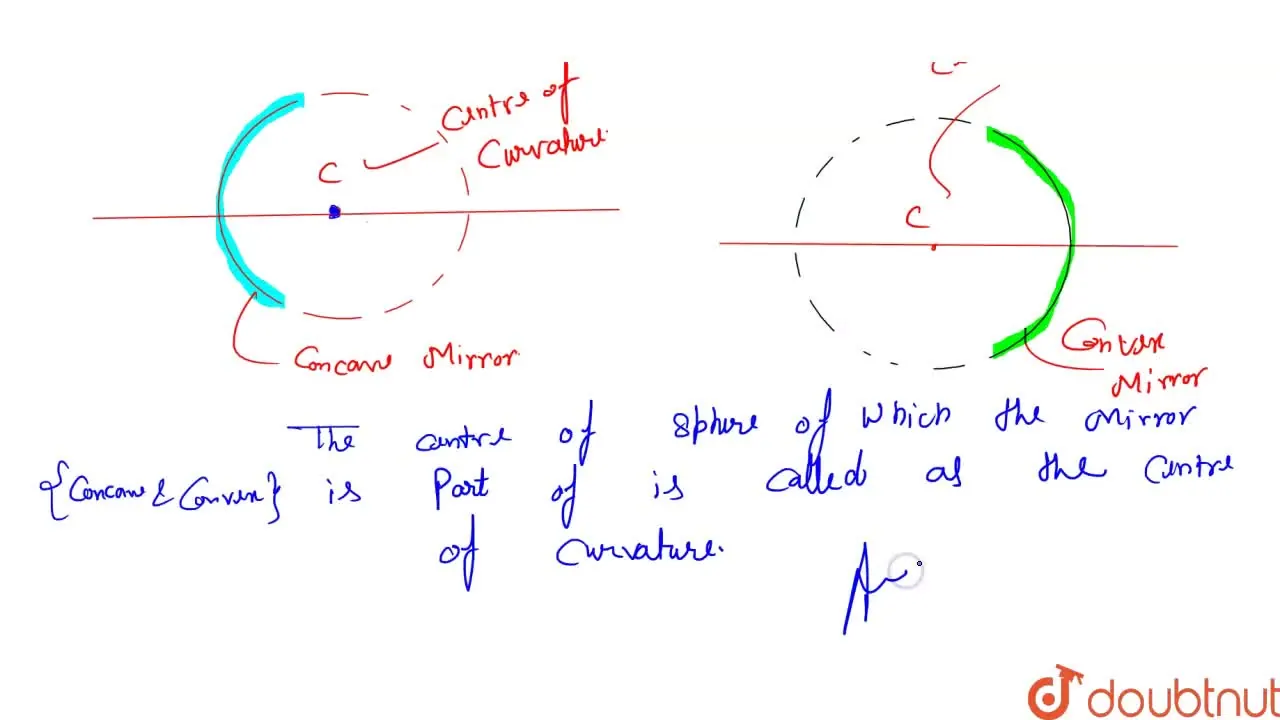 Centre of
Curvature.
C
C
Concave Mirror.
Convex
Mirror
The centre of sphere of which the Mirror
{Concave & Convex} is Part of is called as the Centre
of Curvature.
doubtnut